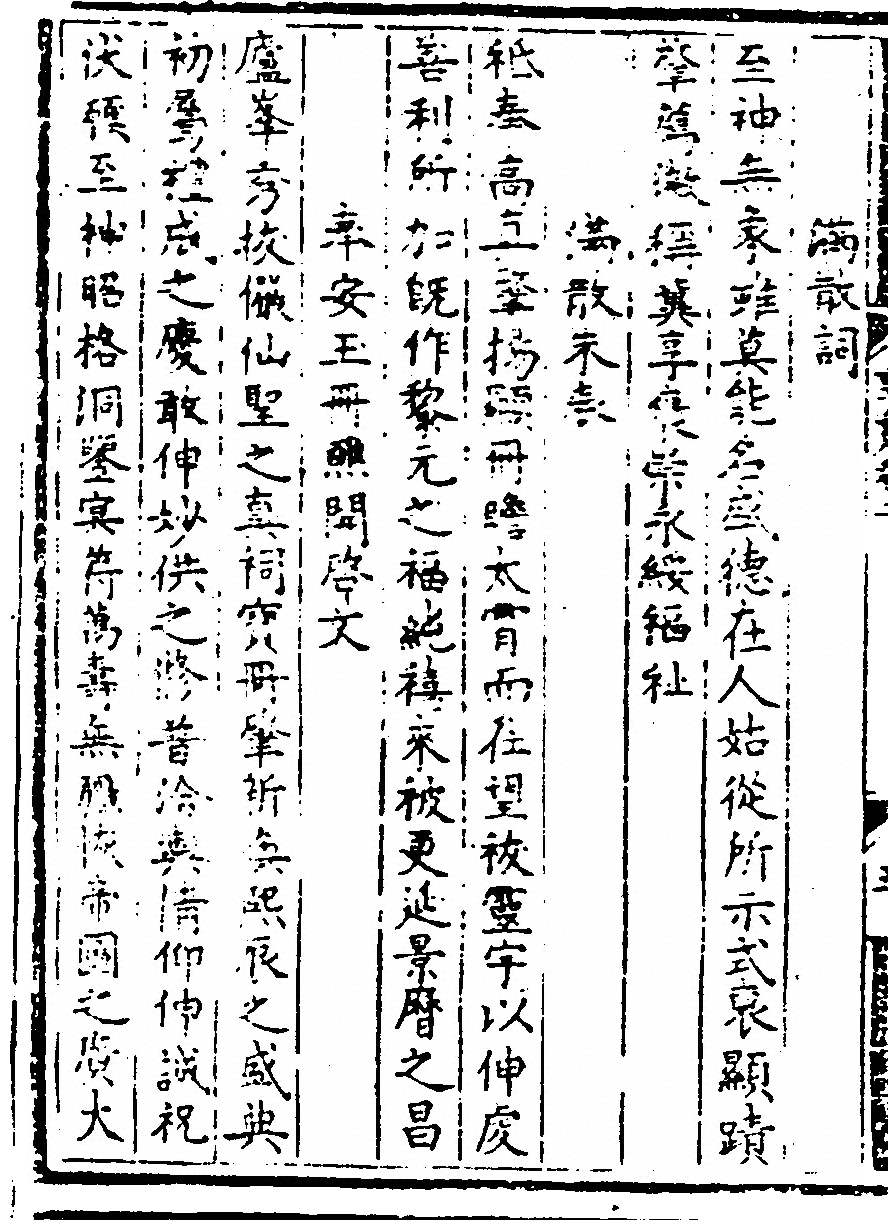 滿散詞
至神無象雖莫能名盛德在人姑從所示式哀顯蹟
肇薦徽稱冀享衆榮永綏福祉
滿散朱表
祗奉高立肇揚顯冊瞻太霄而在望祓靈宇以伸虔
善利所加旣作黎元之福純禧來被更延景曆之昌
奉安玉冊醮開啓文
廬峯秀拔儼仙聖之真祠寶冊肇祈熙辰之盛典
初譽禮成之慶敢伸妙供之修普洽輿情仰伸誠祝
伏願至神昭格洞鑒冥符萬壽無疆恢帝國之廣大